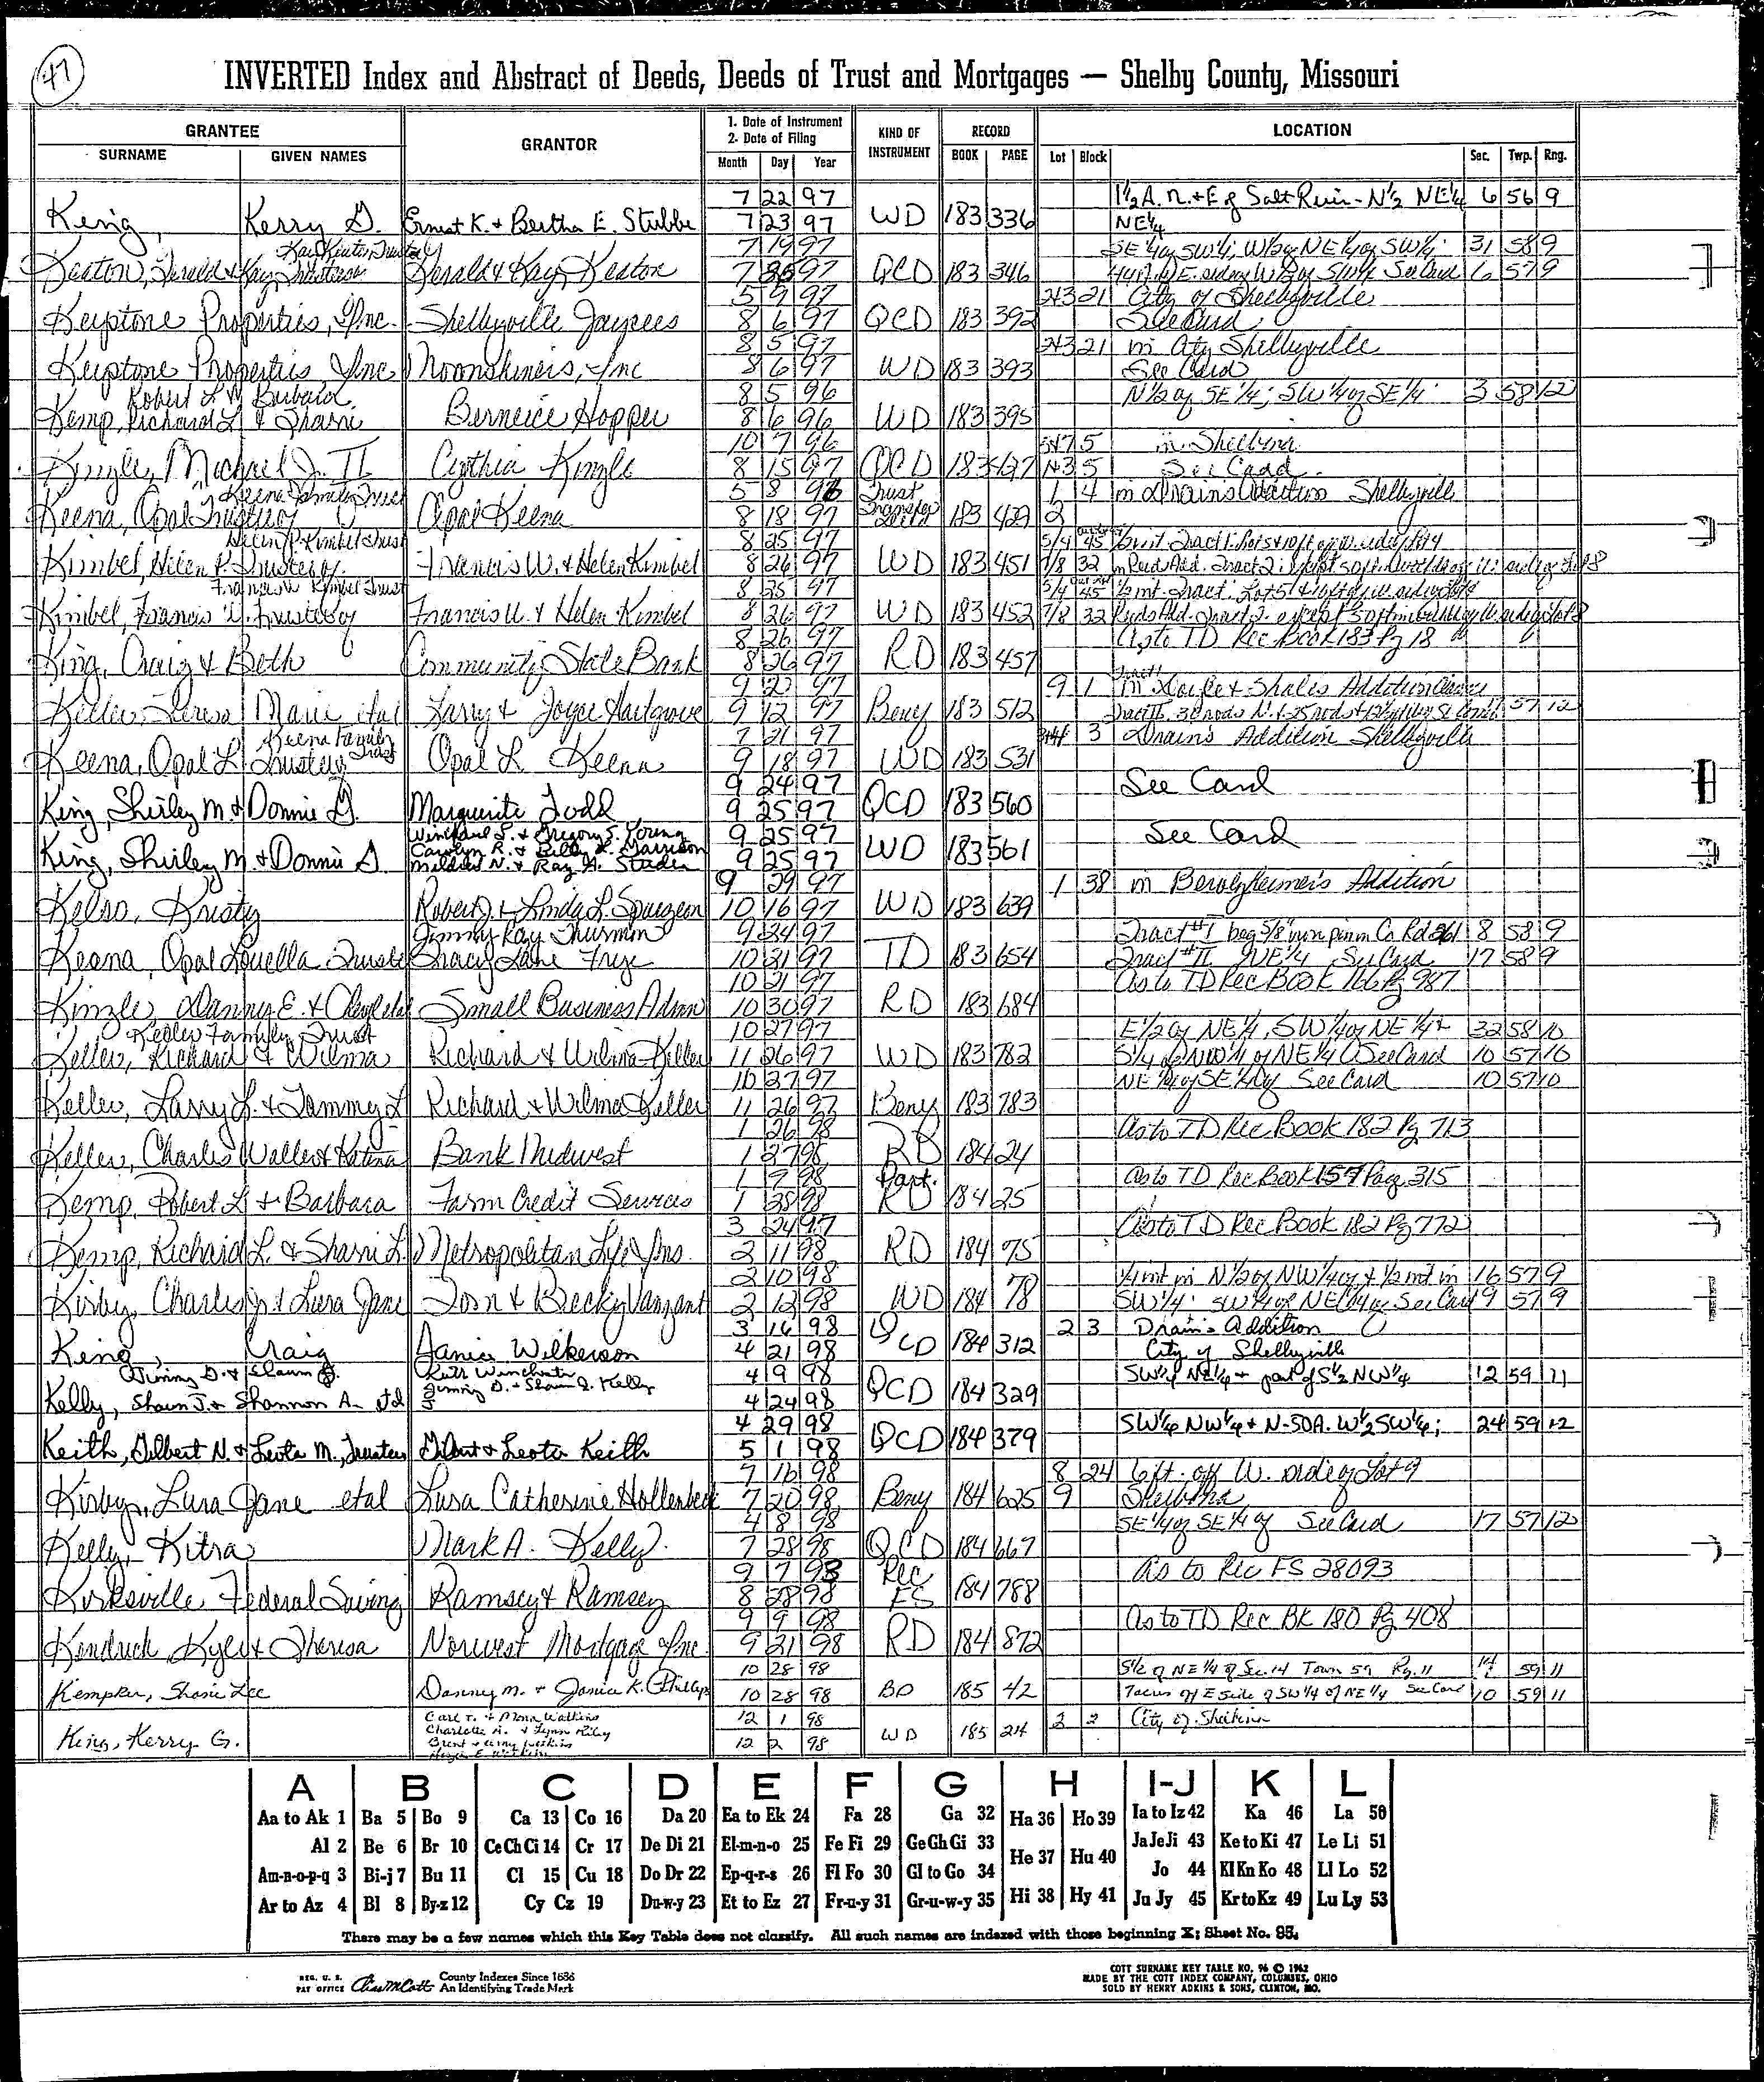 47
INVERTED Index and Abstract of Deeds, Deeds of Trust and Mortgages — Shelby County, Missouri
GRANTEE
SURNAME GIVEN NAMES
GRANTOR
1. Date of Instrument
2. Date of Filing
Month Day Year
KIND OF INSTRUMENT
RECORD
BOOK PAGE
LOCATION
Lot Block Sec. Twp. Rng.
7 22 97 1½ A. N. + E of Salt River - N½ NE¼ 6 56 9
King, Kerry G. Ernest K. + Bertha E. Stubbe 7 23 97 WD 183 336 NE¼
7 19 97 SE ¼ of SW¼; W½ of NE ¼ of SW¼ 31 58 9
Keaton, Gerald & Kay, Trustees Gerald & Kay Keaton 7 97 QCD 183 346 See Card 6 57 9
5 9 97 21 City of Shelbyville
Keystone Properties, Inc. Shelbyville Jaycees 8 6 97 QCD 183 392 See Card
8 5 97 21 in City Shelbyville
Keystone Properties Inc Moonshiners, Inc 8 6 97 WD 183 393 See Card
Robert L & Barbara 8 5 96 N½ of SE ¼; SW ¼ of SE ¼ 3 58 12
Kemp, Richard L & Sharri Berneice Hopper 8 6 96 WD 183 395
10 7 96 5 in Shelbina
Kinzle, Michael J. II Cynthia Kinzle 8 15 97 QCD 183 5 See Card
Keena Family Trust 5 8 Trust 1 4 in Drains Addition Shelbyville
Keena, Opal Trustee of Opal Keena 8 18 97 Transfer Deed 183 429 2
Helen P. Kimbel Trust 8 25 97 5/4 45
Kimbel, Helen P. Trustee of Francis W. & Helen Kimbel 8 26 97 WD 183 451 7/8 32
Francis W Kimbel Trust 8 25 97 5/4 45
Kimbel, Francis W. Trustee of Francis W. & Helen Kimbel 8 26 97 WD 183 452 7/8 32
8 26 97 As to TD Rec Book 183 Pg 18
King, Craig & Beth Community State Bank 8 26 97 RD 183 457
9 97 9 1 Addition Clarence
Keller, Teresa Marie etal Larry & Joyce Hartgrove 9 12 97 Beny 183 512 57 12
Keena Family Trust 7 21 97 3 Drains Addition Shelbyville
Keena, Opal L Trustee Opal L Keena 9 18 97 WD 183 531
9 24 97 See Card
King, Shirley M. & Donnie G. Marguerite Todd 9 25 97 QCD 183 560
Gregory S. Young 9 25 97 See Card
King, Shirley M. & Donnie G. Carolyn R. & Billy Garrison 9 25 97 WD 183 561
Mildred N. & Ray A.
9 29 97 1 38 in Berolzheimer's Addition
Kelso, Kristy Robert J. & Linda L. Spurgeon 10 16 97 WD 183 639
Jimmy Ray Thurmon 9 24 97 Tract #I beg 5/8" iron pin in Co Rd 261 8 58 9
Keena, Opal Louella Trustee Tracy Lane Frye 10 21 97 TD 183 654 Tract #II NE ¼ See Card 17 58 9
10 21 97 As to TD Rec Book 166 Pg 987
Kinzle, Danny E. & Cheryl etal Small Business Admn 10 30 97 RD 183 684
Keller Family Trust 10 27 97 E½ of NE ¼, SW ¼ of NE ¼ & 32 58 10
Keller, Richard & Wilma Richard & Wilma Keller 11 26 97 WD 183 782 S¼ of NW ¼ of NE ¼ See Card 10 57 10
10 27 97 NE ¼ of SE ¼ of See Card 10 57 10
Keller, Larry L. & Tammy L Richard & Wilma Keller 11 26 97 Beny 183 783
1 26 98 As to TD Rec Book 182 Pg 713
Keller, Charles Walter & Katina Bank Midwest 1 27 98 RD 184 24
1 9 98 Part. As to TD Rec Book 157 Page 315
Kemp, Robert L & Barbara Farm Credit Services 1 28 98 RD 184 25
3 24 97 As to TD Rec Book 182 Pg 772
Kemp, Richard L. & Sharri L. Metropolitan Life Ins. 2 11 98 RD 184 75
2 10 98 ¼ int in N½ of NW ¼ of & ½ int in 16 57 9
Kirby, Charles Jr & Lura Jane Tom & Becky Vanzant 2 12 98 WD 184 78 SW¼; SW ¼ of NE ¼ of See Card 9 57 9
3 16 98 2 3 Drain's Addition
King, Craig Janice Wilkerson 4 21 98 QCD 184 312 City of Shelbyville
Jimmy D. & Shawn J. Ruth Winchester 4 9 98 SW¼ NE¼ + part of S½ NW¼ 12 59 11
Kelly, Shawn J. & Shannon A. Jimmy D. & Shawn J. Kelly 4 24 98 QCD 184 329
4 29 98 SW¼ NW¼ + N-50A. W½ SW¼; 24 59 12
Keith, Gilbert N. & Leota M., Trustees Gilbert & Leota Keith 5 1 98 QCD 184 379
7 16 98 8 24 6 ft. off W. side of Lot 9
Kirby, Lura Jane etal Lura Catherine Hollenbeck 7 20 98 Beny 184 625 9 Shelbina
4 8 98 SE ¼ of SE ¼ of See Card 17 57 12
Kelly, Kitra Mark A. Kelly 7 28 98 QCD 184 667
9 7 98 Rec As to Rec FS 28093
Kirksville Federal Saving Ramsey & Ramsey 8 28 98 FS 184 788
9 9 98 As to TD Rec BK 180 Pg 408
Kendrick, Kyle & Theresa Norwest Mortgage Inc. 9 21 98 RD 184 872
10 28 98 S½ of NE ¼ of Sec. 14 Town 59 Rg. 11 14 59 11
Kempker, Sharie Lee Danny M. & Janice K. Phillips 10 28 98 BD 185 42 7 acres off E side of SW ¼ of NE ¼ See Card 10 59 11
Carl T. & Mona Watkins 12 1 98 2 2 City of Shelbina
King, Kerry G. Charlotte A. & Lynn Riley 12 2 98 WD 185 214
A B C D E F G H I-J K L
Aa to Ak 1 Ba 5 Bo 9 Ca 13 Co 16 Da 20 Ea to Ek 24 Fa 28 Ga 32 Ha 36 Ho 39 Ia to Iz 42 Ka 46 La 50
Al 2 Be 6 Br 10 Ce Ch Ci 14 Cr 17 De Di 21 El-m-n-o 25 Fe Fi 29 Ge Gh Gi 33 He 37 Hu 40 Ja Je Ji 43 Ke to Ki 47 Le Li 51
Am-n-o-p-q 3 Bi-j 7 Bu 11 Cl 15 Cu 18 Do Dr 22 Ep-q-r-s 26 Fl Fo 30 Gl to Go 34 Jo 44 Kl Kn Ko 48 Ll Lo 52
Ar to Az 4 Bl 8 By-z 12 Cy Cz 19 Du-w-y 23 Et to Ez 27 Fr-u-y 31 Gr-u-w-y 35 Hi 38 Hy 41 Ju Jy 45 Kr to Kz 49 Lu Ly 53
There may be a few names which this Key Table does not classify. All such names are indexed with those beginning X; Sheet No. 95.
REG. U. S. PAT OFFICE County Indexes Since 1836 An Identifying Trade Mark
COTT SURNAME KEY TABLE NO. 96 © 1962
MADE BY THE COTT INDEX COMPANY, COLUMBUS, OHIO
SOLD BY HENRY ADKINS & SONS, CLINTON, MO.